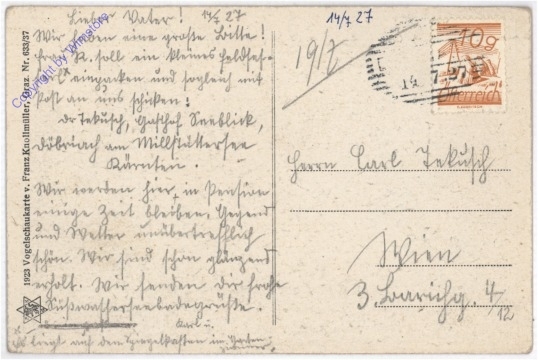 Lieber Vater! 14/7 27
Wir haben eine große Bitte!
Frau R. soll ein kleines
einpacken und sogleich mit
Post an uns schicken!
Dr Tekusch, Gasthof Seeblick,
Döbriach am Millstättersee
Kärnten.
Wir werden hier in Pension
einige Zeit bleiben. Gegend
und Wetter unübertrefflich
schön. Wir sind schon glänzend
erholt. Wir senden dir frohe
Süßwasserseebadegrüße.
Karl u.
liegt auf dem Spiegelkasten im
1923 Vogelschaukarte v. Franz Knollmüller, Graz. Nr. 633/37
Copyright by Wimstore
14/7 27
19/7
10g
Österreich
14. 7. 27
Herrn Carl Tekusch
Wien
3. Barichg. 4/12